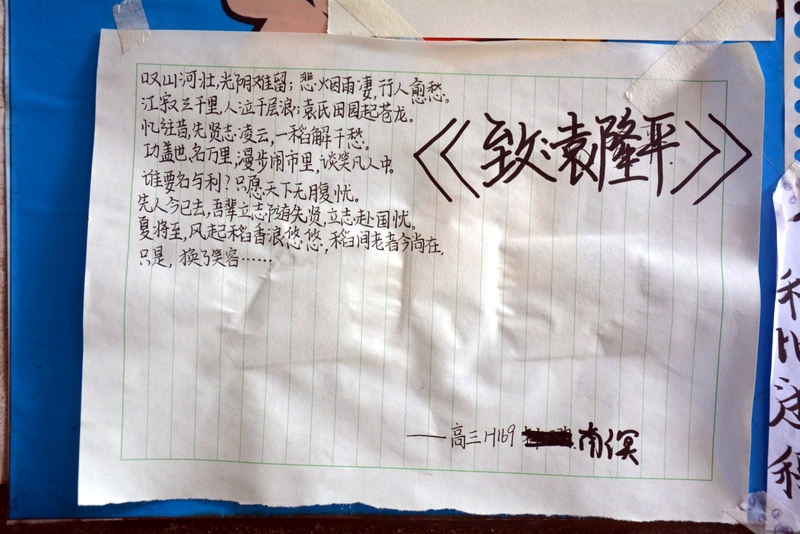 《致袁隆平》
叹山河壮,光阴难留;悲烟雨凄,行人愈愁。
江寂三千里,人泣千层浪;袁氏田园起苍龙。
忆往昔,先贤志凌云,一稻解千愁。
功盖世,名万里,漫步闹市里,谈笑凡人中。
谁要名与利?只愿天下无月复忧。
先人今已去,吾辈立志随先贤,立志赴国忧。
夏将至,风起稻香浪悠悠,稻间老者今尚在,
只是,换了笑容……
——高三H169 南溟